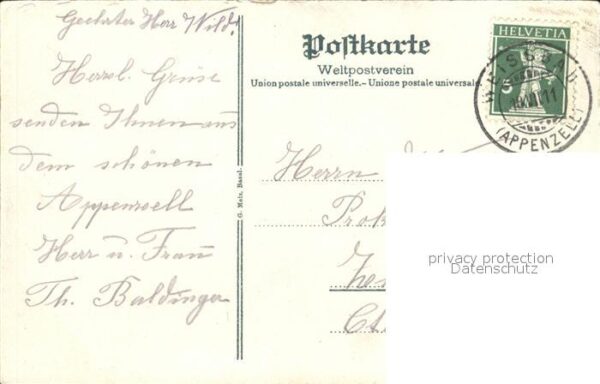 Geehrter Herr Wild.
Herzl. Grüsse
senden Ihnen aus
dem schönen
Appenzell
Herr u. Frau
Th. Baldinger
G. Metz, Basel.
Postkarte
Weltpostverein
Union postale universelle. – Unione postale universale
HELVETIA
5
WEISSBAD
11
(APPENZELL)
Herrn
Prok
privacy protection
Datenschutz